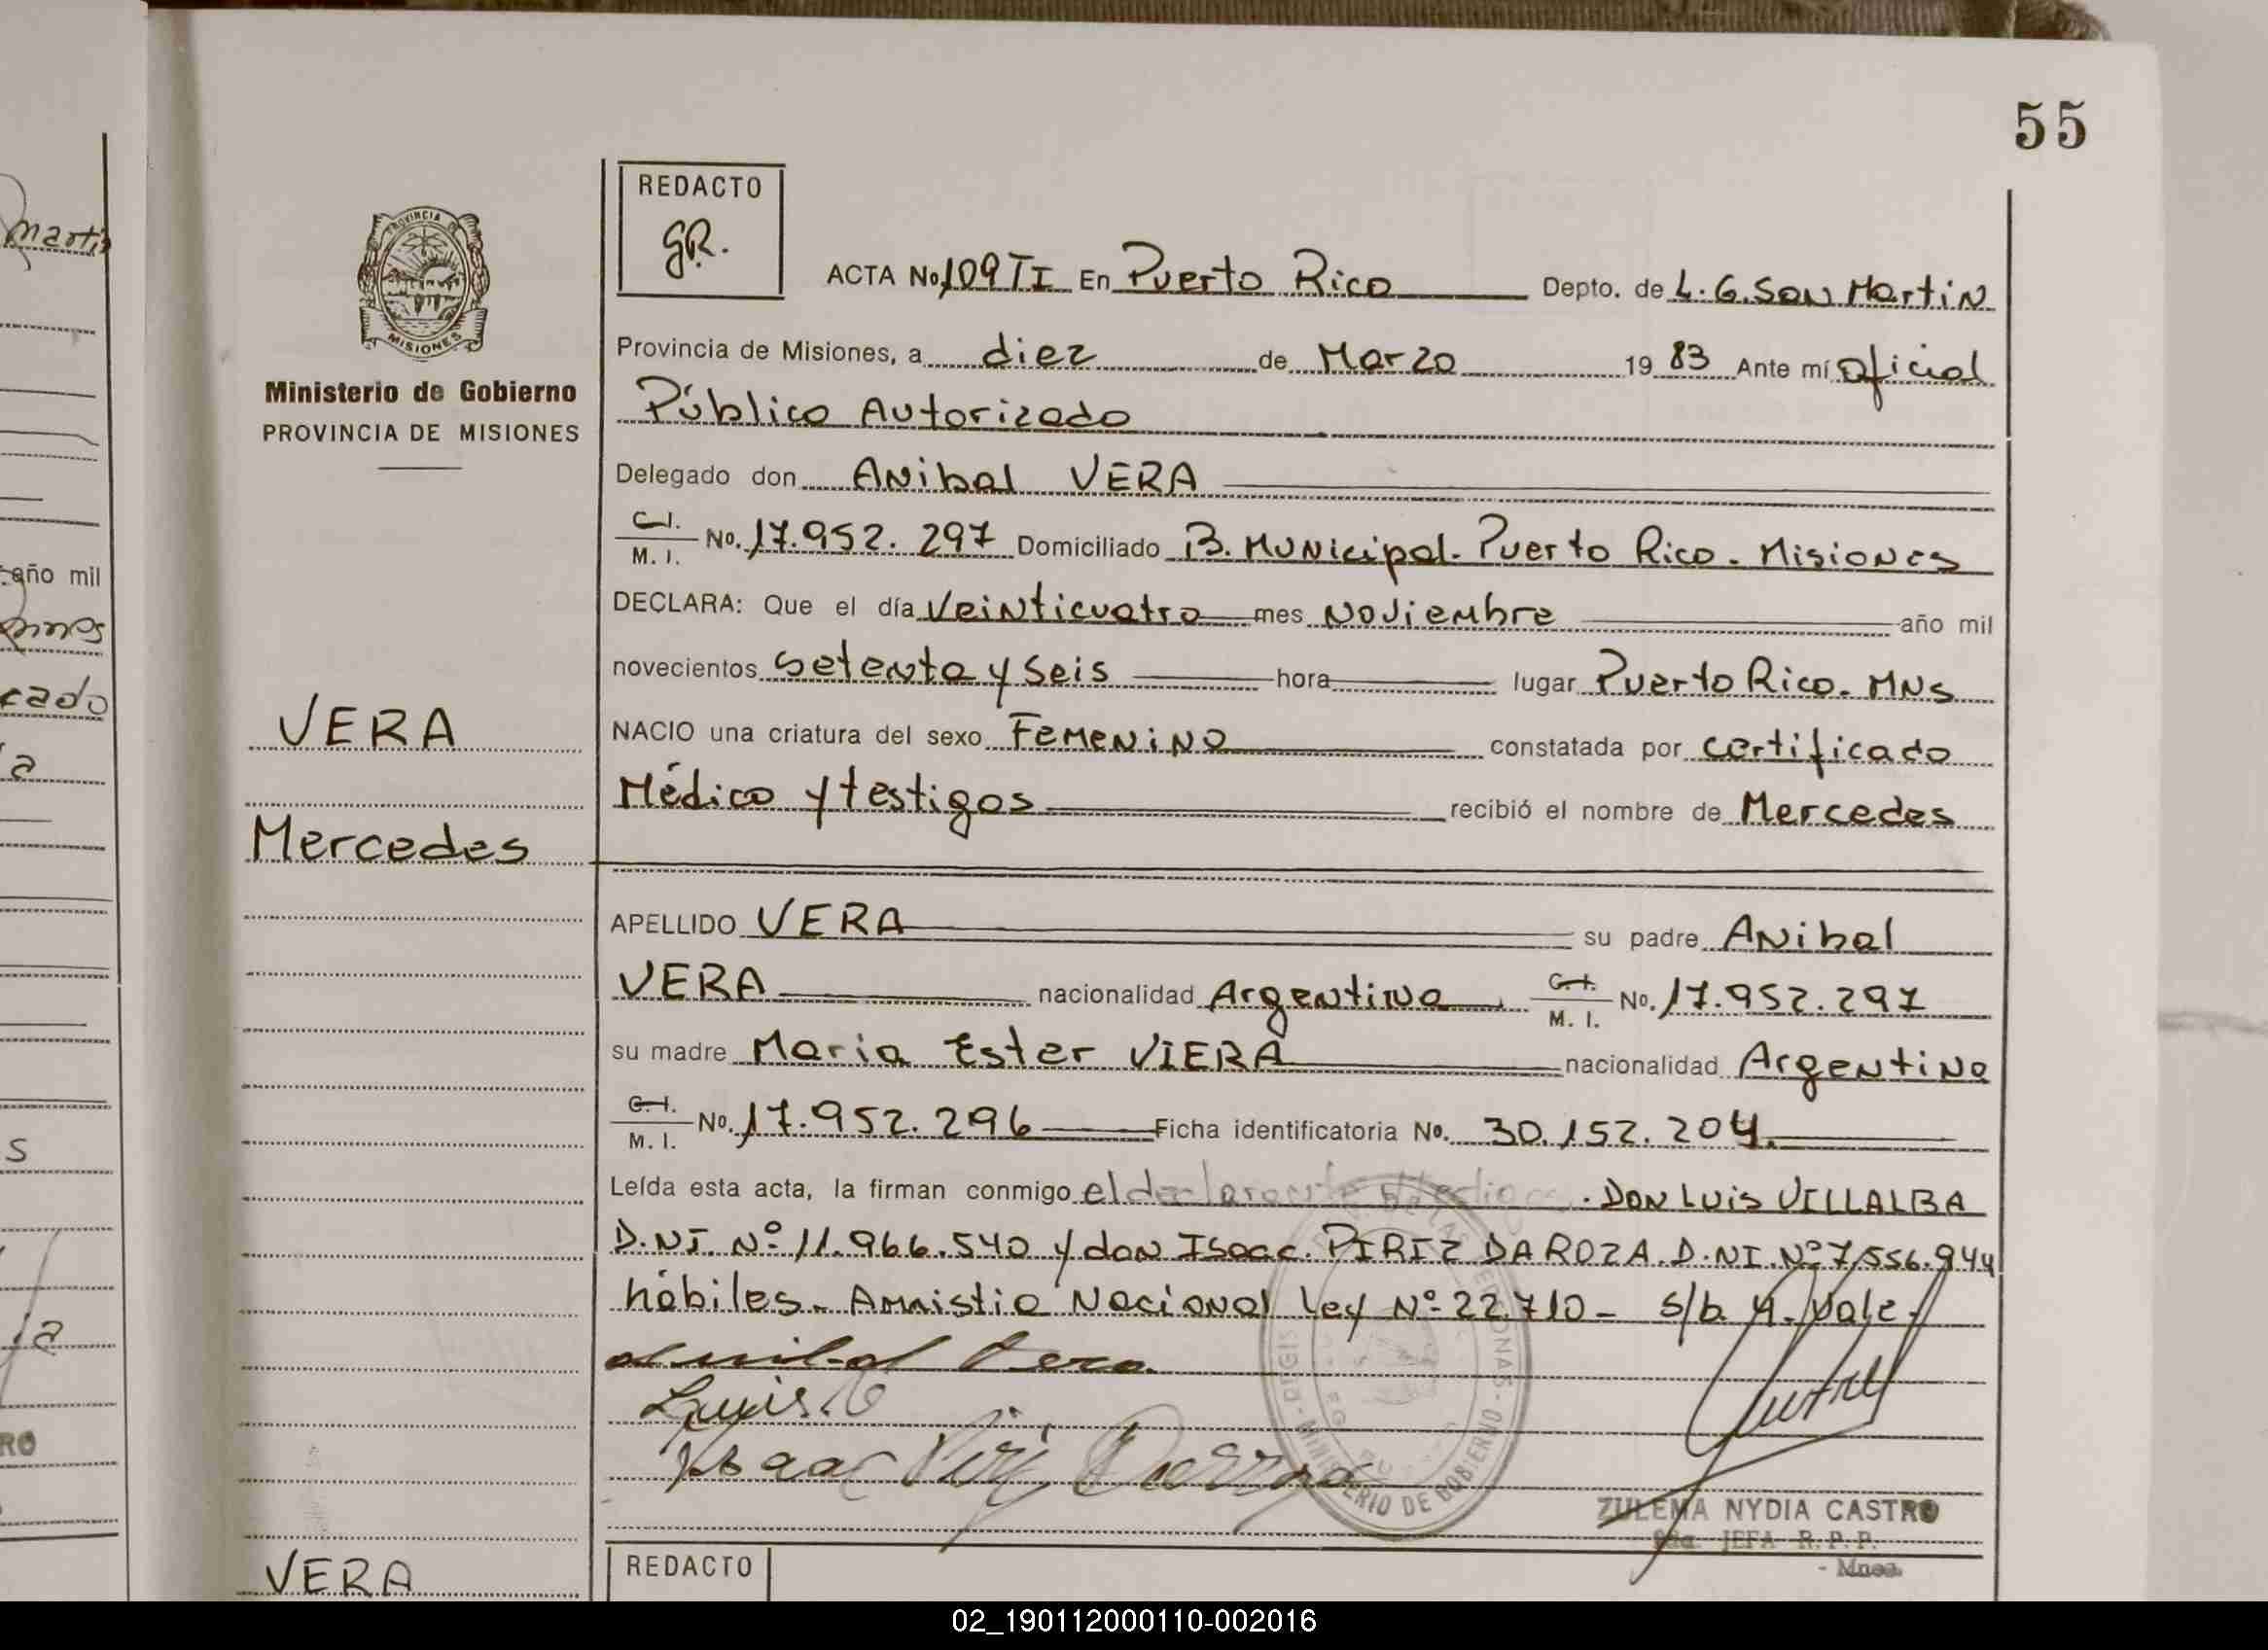 55
REDACTO
GR.
ACTA No. 109 TI En Puerto Rico Depto. de L. G. San Martin
PROVINCIA DE
MISIONES
Provincia de Misiones, a diez de Marzo 19 83 Ante mí Oficial
Ministerio de Gobierno
PROVINCIA DE MISIONES
Público Autorizado
Delegado don Anibal VERA
C.I.
M. I. No. 17.952.297 Domiciliado B. Municipal. Puerto Rico. Misiones
DECLARA: Que el día veinticuatro mes Noviembre año mil
novecientos setenta y seis hora lugar Puerto Rico. MNS
VERA
NACIO una criatura del sexo Femenino constatada por certificado
Médico y testigos recibió el nombre de Mercedes
Mercedes
APELLIDO VERA su padre Anibal
VERA nacionalidad Argentina C.I.
M. I. No. 17.952.297
su madre Maria Ester VIERA nacionalidad Argentina
C.I.
M. I. No. 17.952.296 Ficha identificatoria No. 30.152.204.
Leída esta acta, la firman conmigo el declarante . DON LUIS VILLALBA
D.NI. Nº 11.966.540 y don Isaac. PIRIZ DAROZA. D.NI. Nº 7.556.944
hábiles. Amnistia Nacional Ley Nº 22.710 - s/b. Vale.
Anibal Vera
Luis V
Isaac Piriz Darroza
MINISTERIO DE GOBIERNO
ZULEMA NYDIA CASTRO
2da. JEFA R. P. P.
- Mnes.
REDACTO
VERA
martin
año mil
cado
a
s
RO
02_190112000110-002016